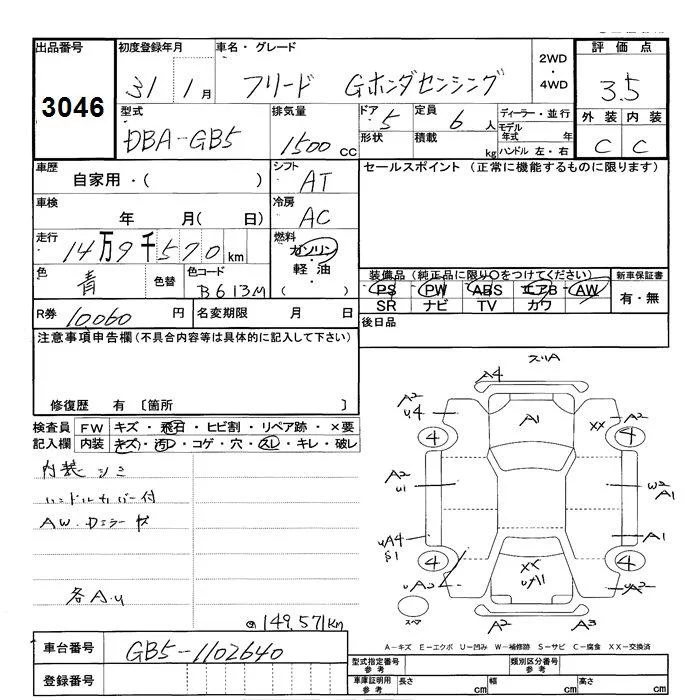 出品番号 初度登録年月 車名・グレード 2WD・4WD 評価点
3046 31 1月 フリード Gホンダセンシング 3.5
型式 排気量 ドア 定員 ディーラー・並行 外装 内装
DBA-GB5 1500cc 5 6人 モデル年式 年 C C
形状 積載 kg ハンドル 左・右
車歴 シフト セールスポイント (正常に機能するものに限ります)
自家用・( ) AT
車検 冷房
年 月( 日) AC
走行 燃料
14万9千570km ガソリン・軽油 ( )
色 色替 色コード 装備品 (純正品に限り○をつけてください) 新車保証書
青 B613M PS PW ABS エアB AW 有・無
SR ナビ TV カワ
R券 10060円 名変期限 月 日 後日品
注意事項申告欄 (不具合内容等は具体的に記入して下さい)
修復歴 有 〔箇所 〕
検査員 FW キズ・飛石・ヒビ割・リペア跡・×要
記入欄 内装 キズ・汚・コゲ・穴・スレ・キレ・破レ
内装シミ
ハンドルカバー付
AW.
各A.u
149,571km
スリA
A4
A2 A1 XX A2
u4
4 4
A2 A1
u1
uA4 A1
S1
4 XX 4
uA1 uA2
スペア A2 A3
A-キズ E-エクボ U-凹み W-補修跡 S-サビ C-腐食 XX-交換済
車台番号 GB5-1102640
登録番号
型式指定番号 参考 類別区分番号 参考
車庫証明用 参考 長さ cm 幅 cm 高さ cm